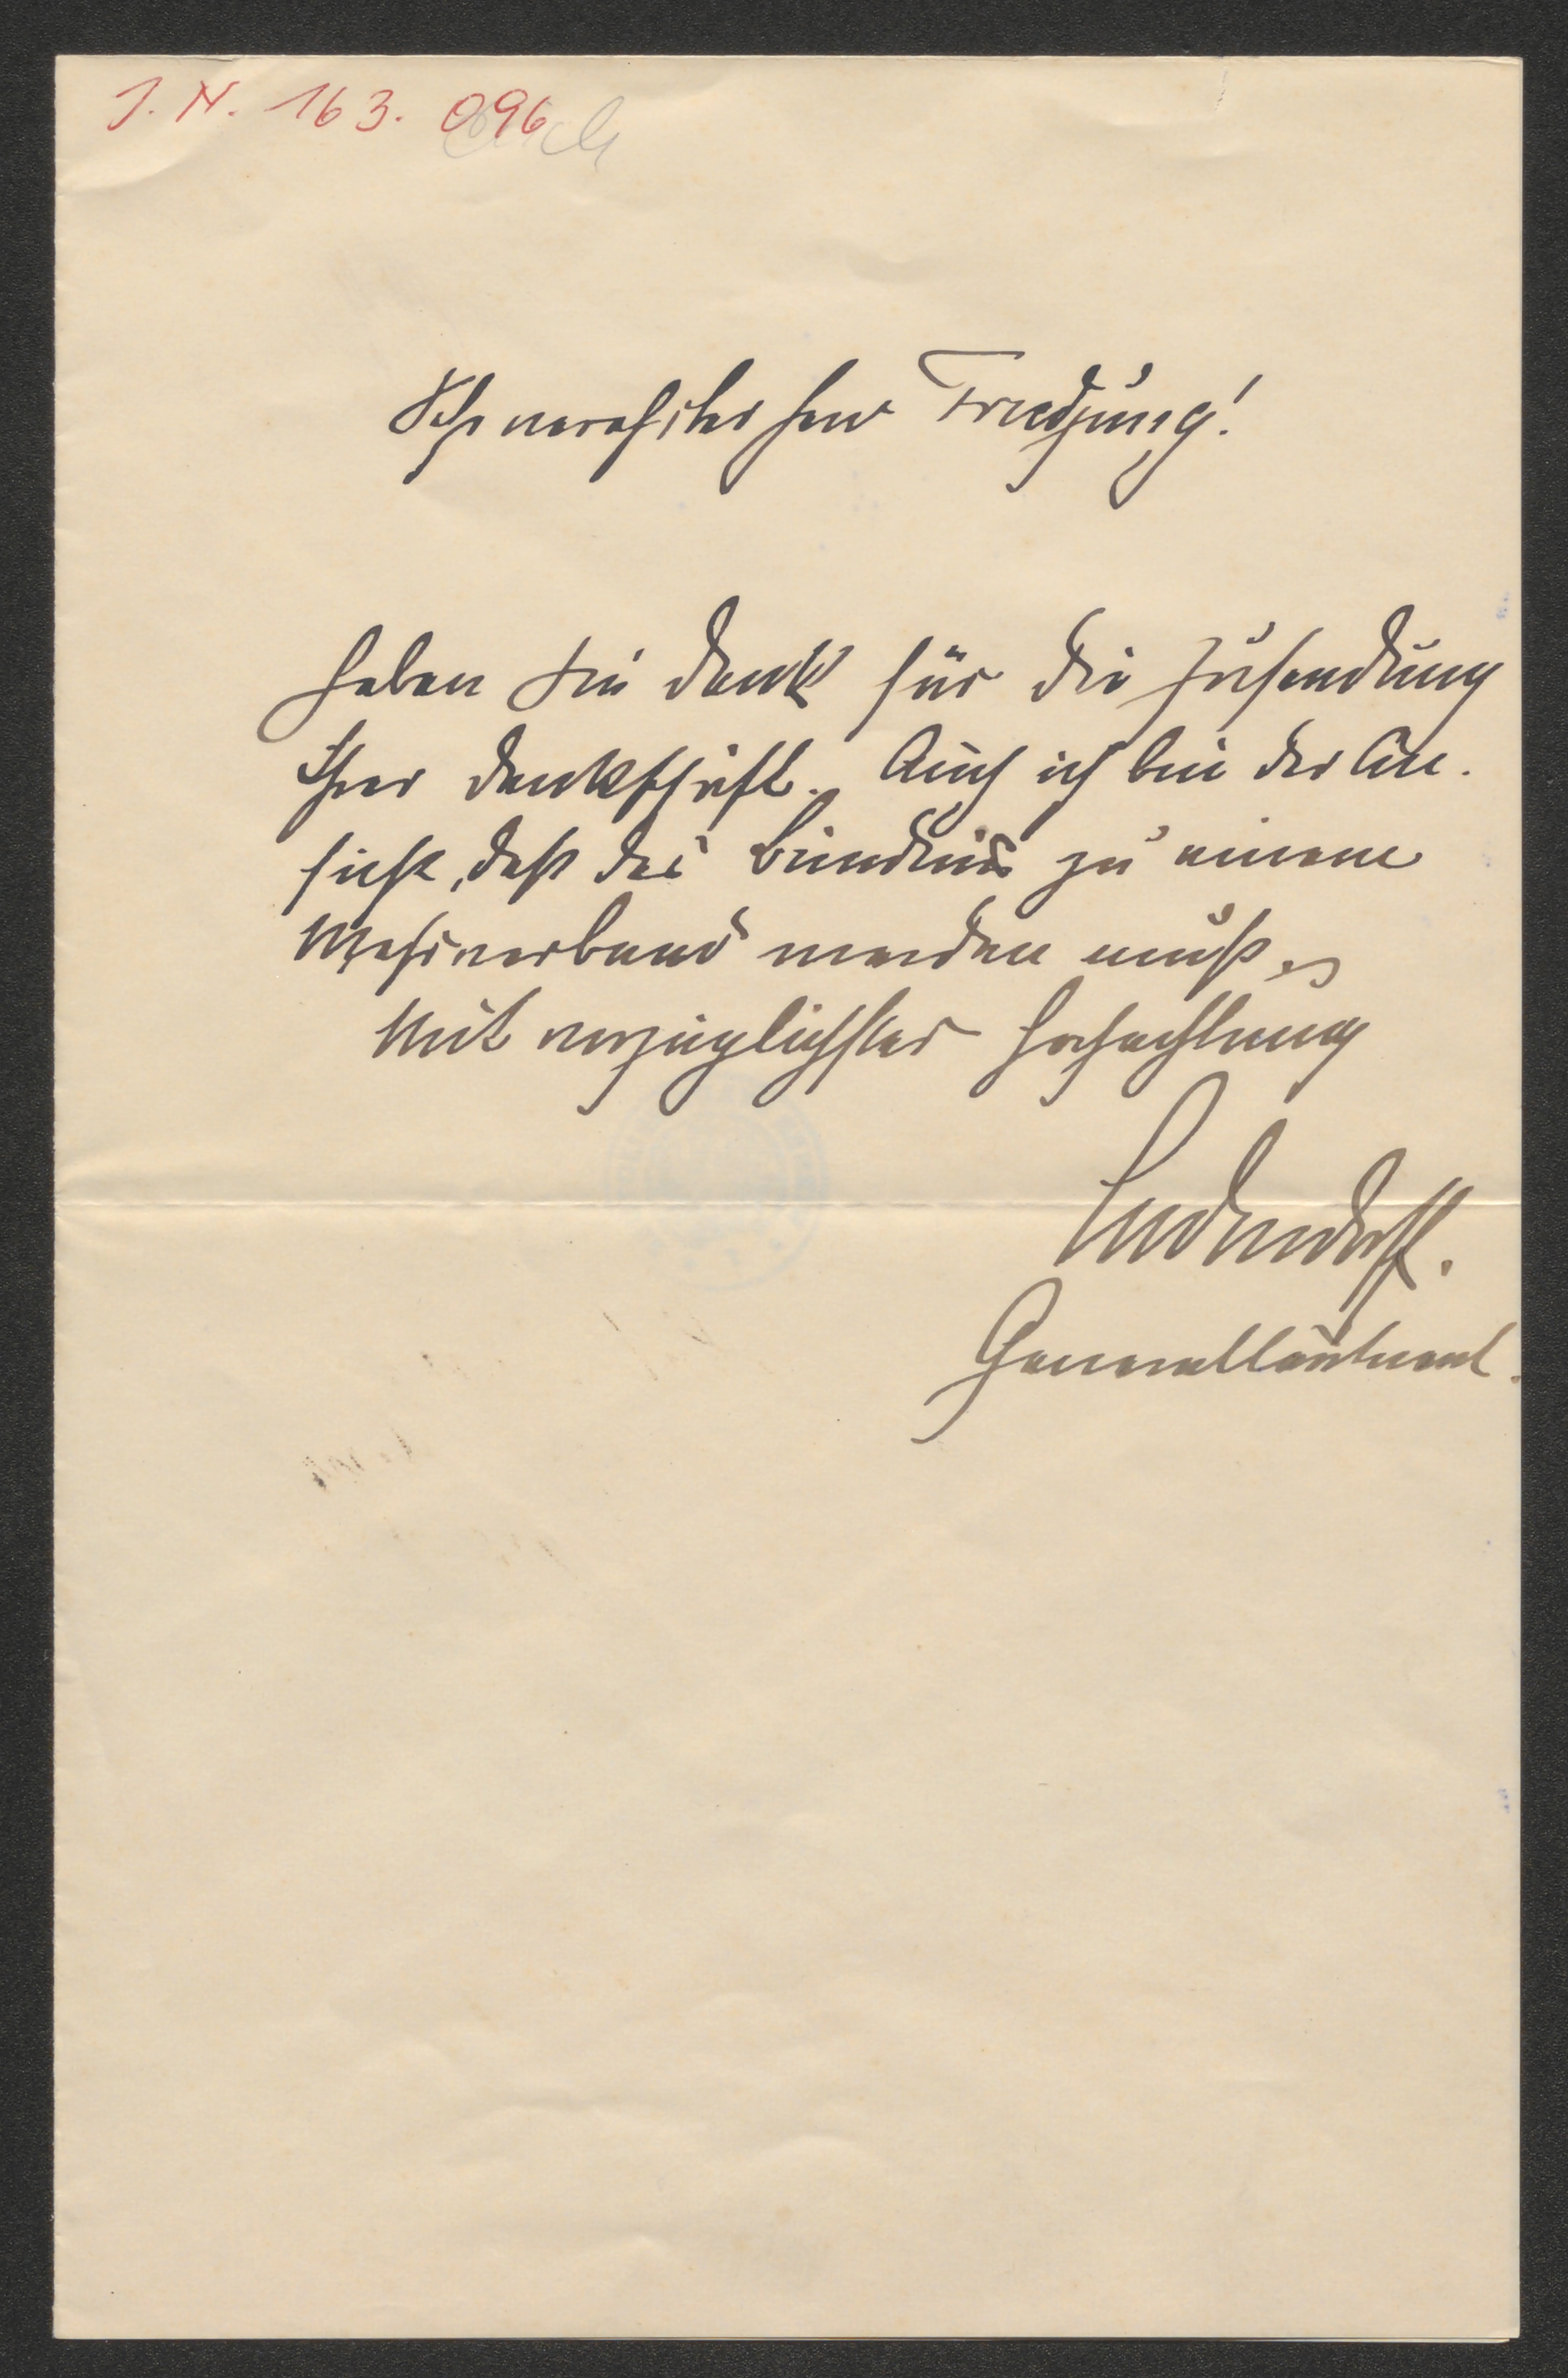 J. N. 163. 096
Sehr verehrter Herr Friedjung!
Haben Sie Dank für die Zusendung
Ihrer Denkschrift. Auch ich bin der An-
sicht, daß das Bündnis zu einem
Wehrverband werden muß.
Mit vorzüglichster Hochachtung
Ludendorff.
Generalleutnant.